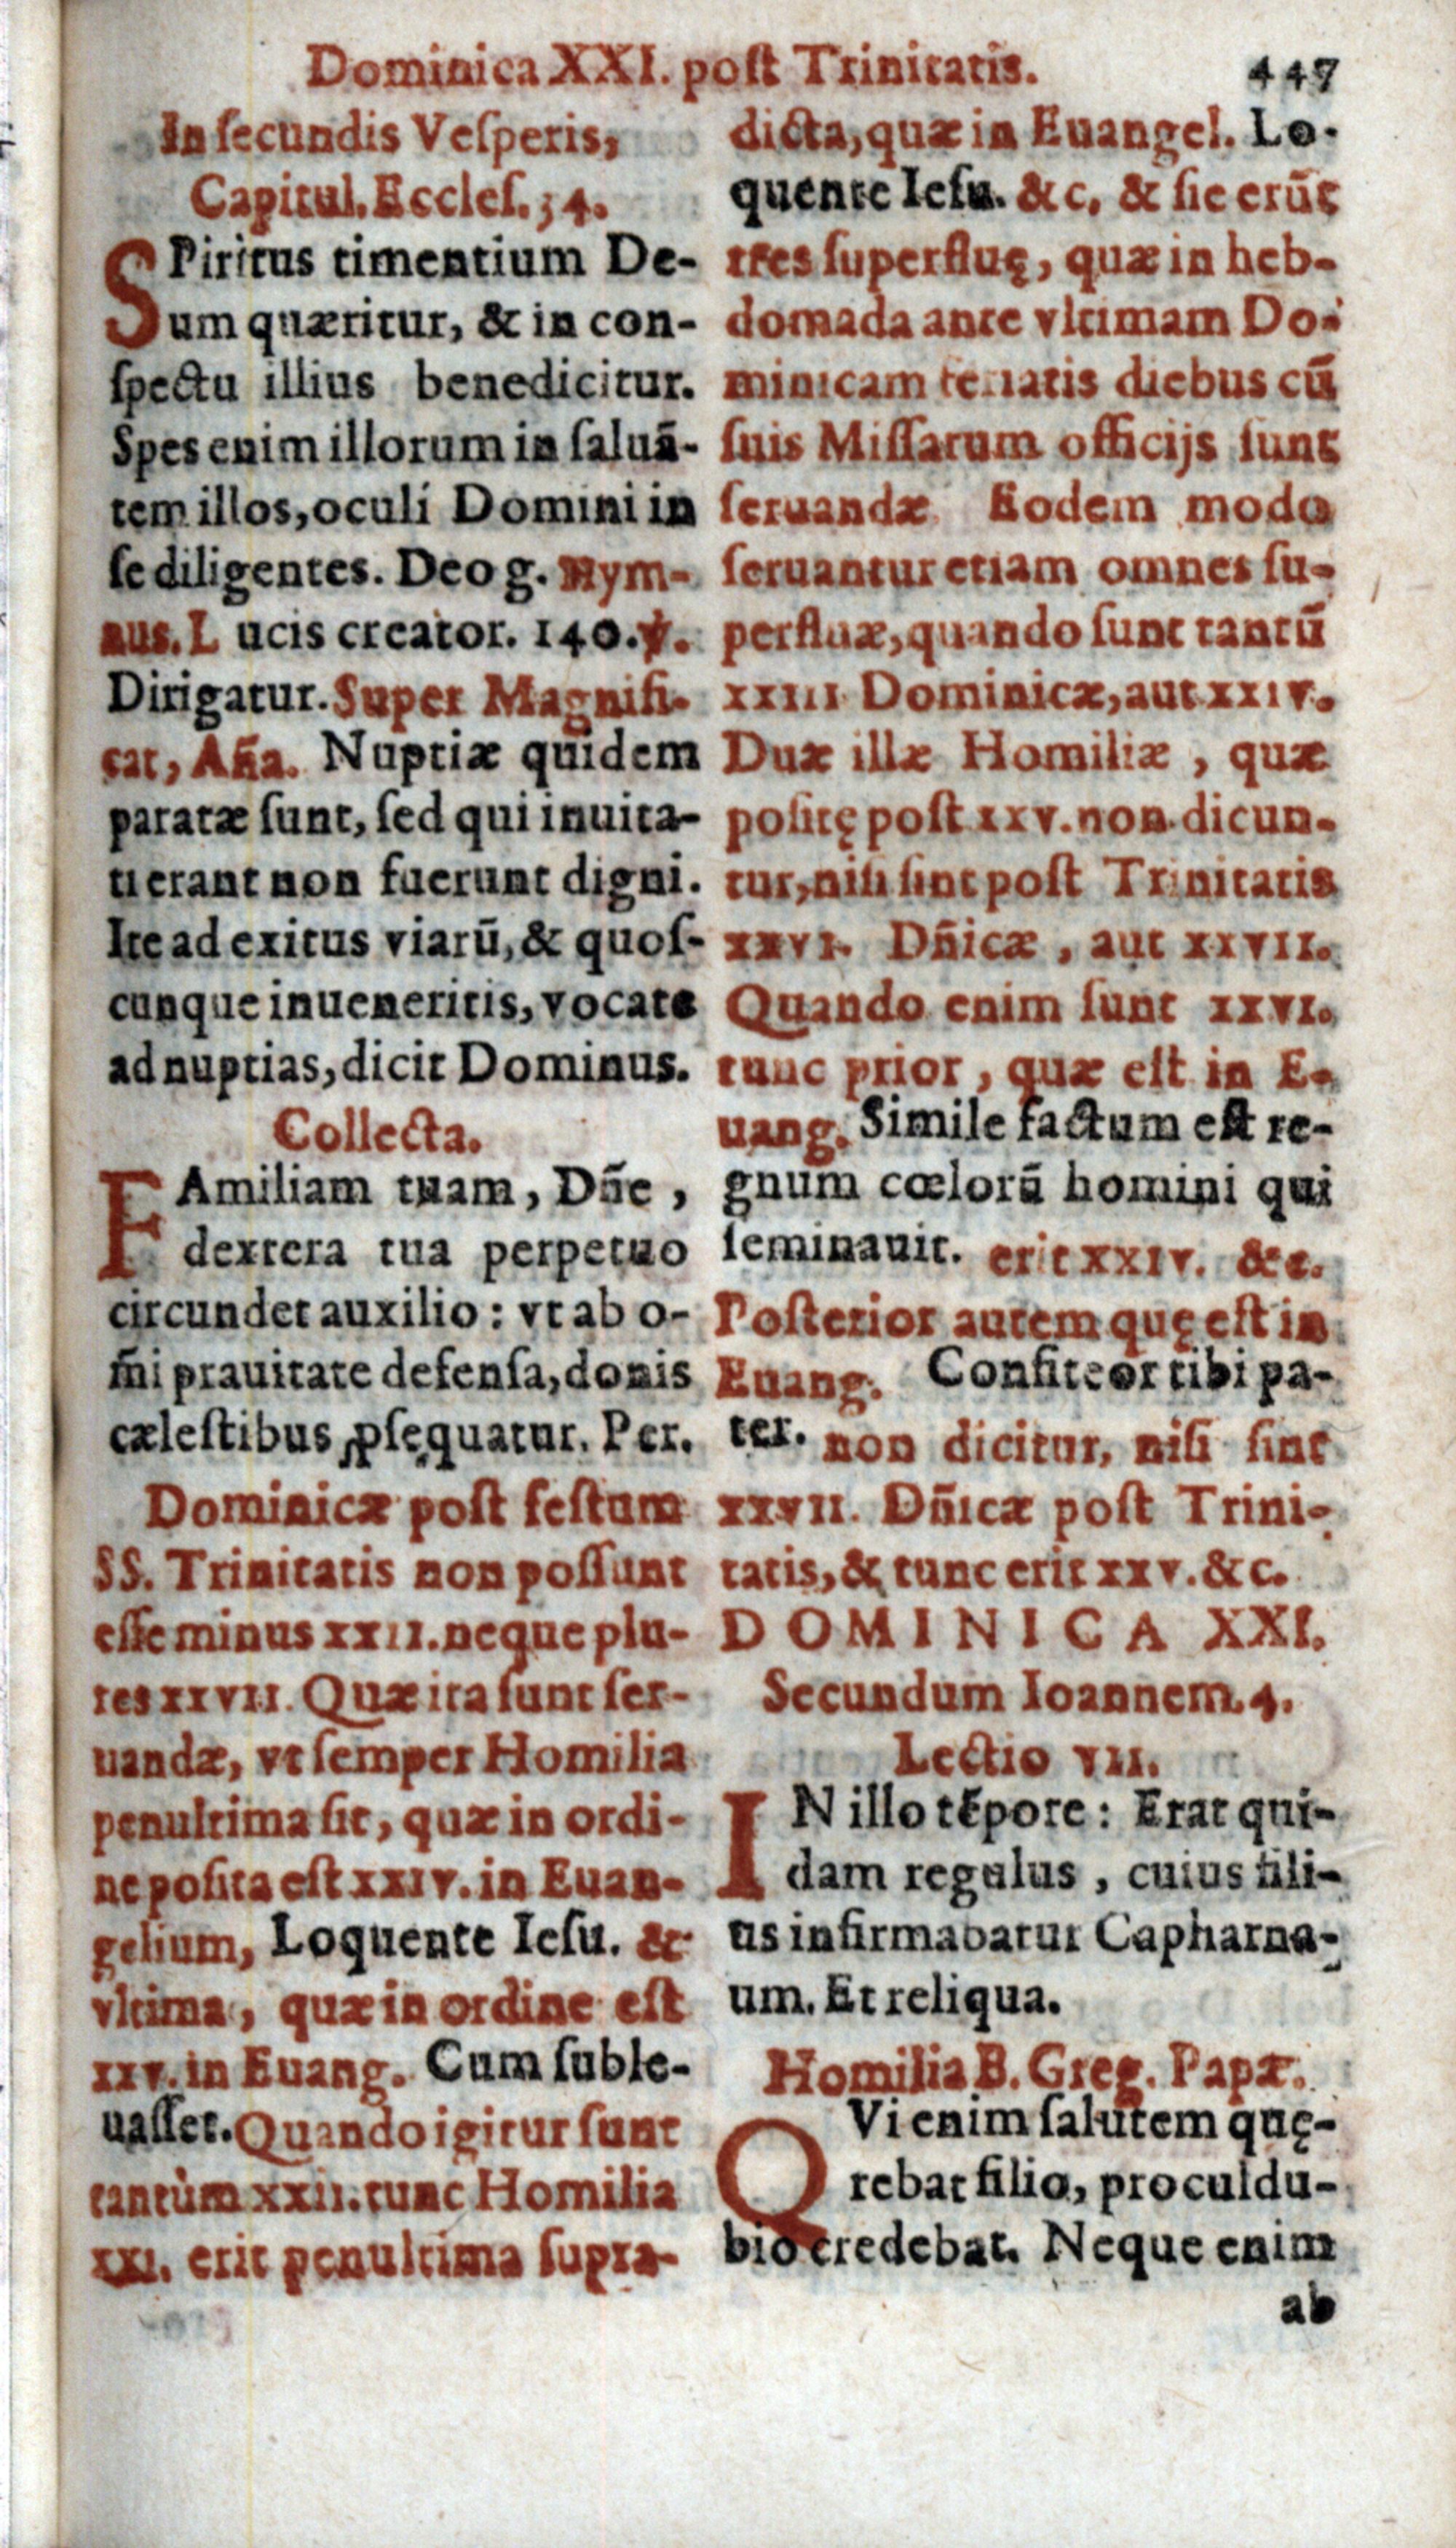 Dominica XXI. poſt Trinitatis. 447
In ſecundis Veſperis,
Capitul. Eccleſ. 34.
SPiritus timentium De-
um quæritur, & in con-
ſpectu illius benedicitur.
Spes enim illorum in ſaluā-
tem illos, oculí Domini in
ſe diligentes. Deo g. Hym-
nus. L ucis creator. 140. ℣.
Dirigatur. Super Magnifi-
cat, Aña. Nuptiæ quidem
paratæ ſunt, ſed qui inuita-
ti erant non fuerunt digni.
Ite ad exitus viarū, & quoſ-
cunque inueneritis, vocate
ad nuptias, dicit Dominus.
Collecta.
FAmiliam tuam, Dñe,
dextera tua perpetuo
circundet auxilio: vt ab o-
m̄i prauitate defenſa, donis
cæleſtibus ꝓſequatur. Per.
Dominicæ poſt feſtum
SS. Trinitatis non poſſunt
eſſe minus xxII. neque plu-
res xxVII. Quæ ita ſunt ſer-
uandæ, vt ſemper Homilia
penultima ſit, quæ in ordi-
ne poſita eſt xxIV. in Euan-
gelium, Loquente Ieſu. &
vltima, quæ in ordine eſt
xxv. in Euang. Cum ſuble-
uaſſet. Quando igitur ſunt
tantùm xxII. tunc Homilia
xxI. erit penultima ſupra-
dicta, quæ in Euangel. Lo-
quente Ieſu. &c. & ſic erūt
tres ſuperfluę, quæ in heb-
domada ante vltimam Do-
minicam feriatis diebus cū
ſuis Miſſarum officijs ſunt
ſeruandæ Eodem modo
ſeruantur etiam omnes ſu-
perfluæ, quando ſunt tantū
xxIII Dominicæ, aut xxIV.
Duæ illæ Homiliæ, quæ
poſitę poſt xxv. non dicun-
tur, niſi ſint poſt Trinitatis
xxVI. Dñicæ, aut xxVII.
Quando enim ſunt xxVI.
tunc prior, quæ eſt in E-
uang. Simile factum eſt re-
gnum cœlorū homini qui
ſeminauit. erit xxIV. &c.
Poſterior autem quę eſt in
Euang. Confiteor tibi pa-
ter. non dicitur, niſi ſint
xxVII. Dñicæ poſt Trini-
tatis, & tunc erit xxv. &c.
DOMINICA XXI.
Secundum Ioannem. 4.
Lectio VII.
IN illo tēpore: Erat qui-
dam regulus, cuius fili-
us infirmabatur Capharna-
um. Et reliqua.
Homilia B. Greg. Papæ.
QVi enim ſalutem quę-
rebat filio, proculdu-
bio credebat. Neque enim
ab